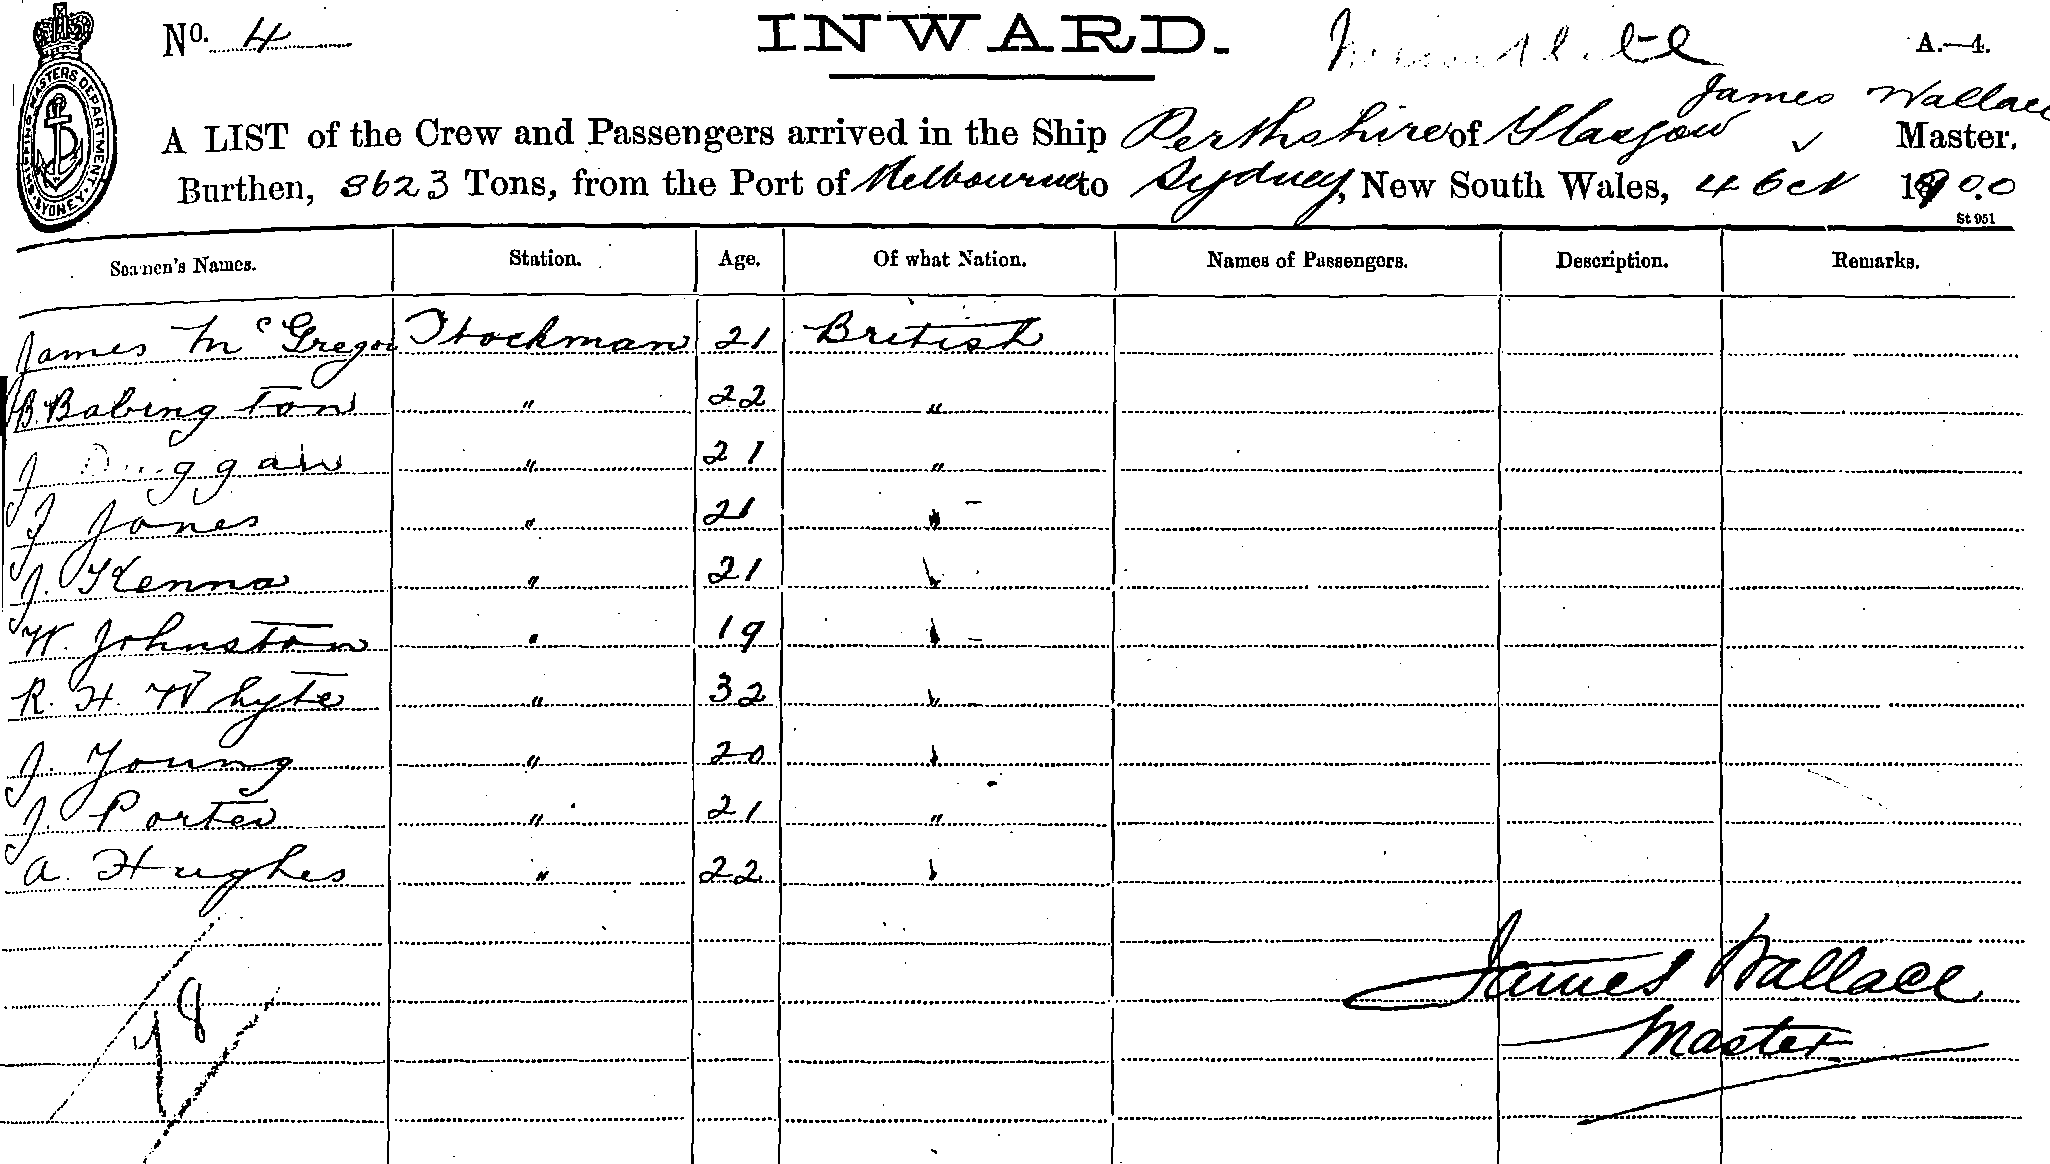 No. 4 INWARD. A.—4.
James Wallace
A LIST of the Crew and Passengers arrived in the Ship Perthshire of Glasgow Master.
Burthen, 3623 Tons, from the Port of Melbourne to Sydney, New South Wales, 4 Oct 1900
St 951
SHIPPING MASTERS DEPARTMENT SYDNEY
Seamen's Names. Station. Age. Of what Nation. Names of Passengers. Description. Remarks.
James McGregor Stockman 21 British
B. Babington " 22 "
J Duggan " 21 "
J Jones " 21 "
J. Kenna " 21 "
W. Johnston " 19 "
R. H. Whyte " 32 "
J. Young " 20 "
J. Porter " 21 "
A. Hughes " 22 "
James Wallace
Master
78